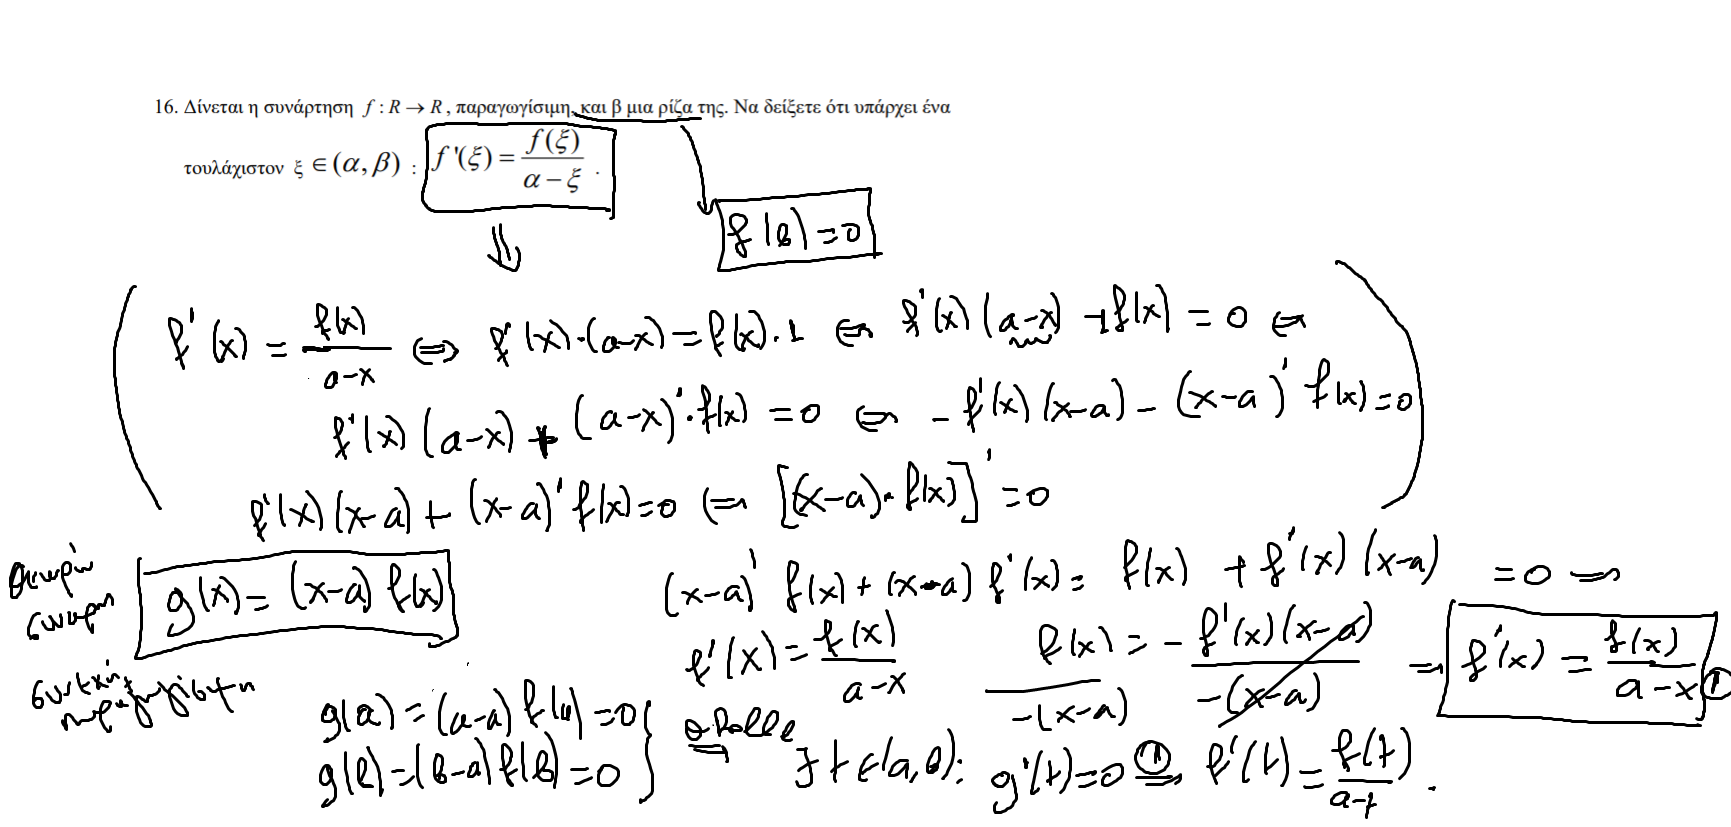 16. Δίνεται η συνάρτηση f : R → R, παραγωγίσιμη, και β μια ρίζα της. Να δείξετε ότι υπάρχει ένα
τουλάχιστον ξ ∈ (α, β) : f '(ξ) = f(ξ)/(α − ξ) .
f(β) = 0
f'(x) = f(x)/(a-x) ⇔ f'(x)·(a-x) = f(x)·1 ⇔ f'(x)(a-x) - 1f(x) = 0 ⇔
f'(x)(a-x) + (a-x)'·f(x) = 0 ⇔ - f'(x)(x-a) - (x-a)' f(x) = 0
f'(x)(x-a) + (x-a)' f(x) = 0 ⇔ [(x-a)·f(x)]' = 0
θεωρώ
συναρτη
g(x) = (x-a) f(x)
(x-a)' f(x) + (x-a) f'(x) = f(x) + f'(x)(x-a) = 0 ⇔
f'(x) = f(x)/(a-x)
f(x)/-(x-a) = - f'(x)(x-a)/-(x-a) ⇒ f'(x) = f(x)/(a-x) ①
συνεχή
παραγωγίσιμη
g(a) = (a-a) f(a) = 0
g(β) = (β-a) f(β) = 0
θ Rolle ⇒ ∃ t ∈ (a, β): g'(t) = 0 ①⇒ f'(t) = f(t)/(a-t) .